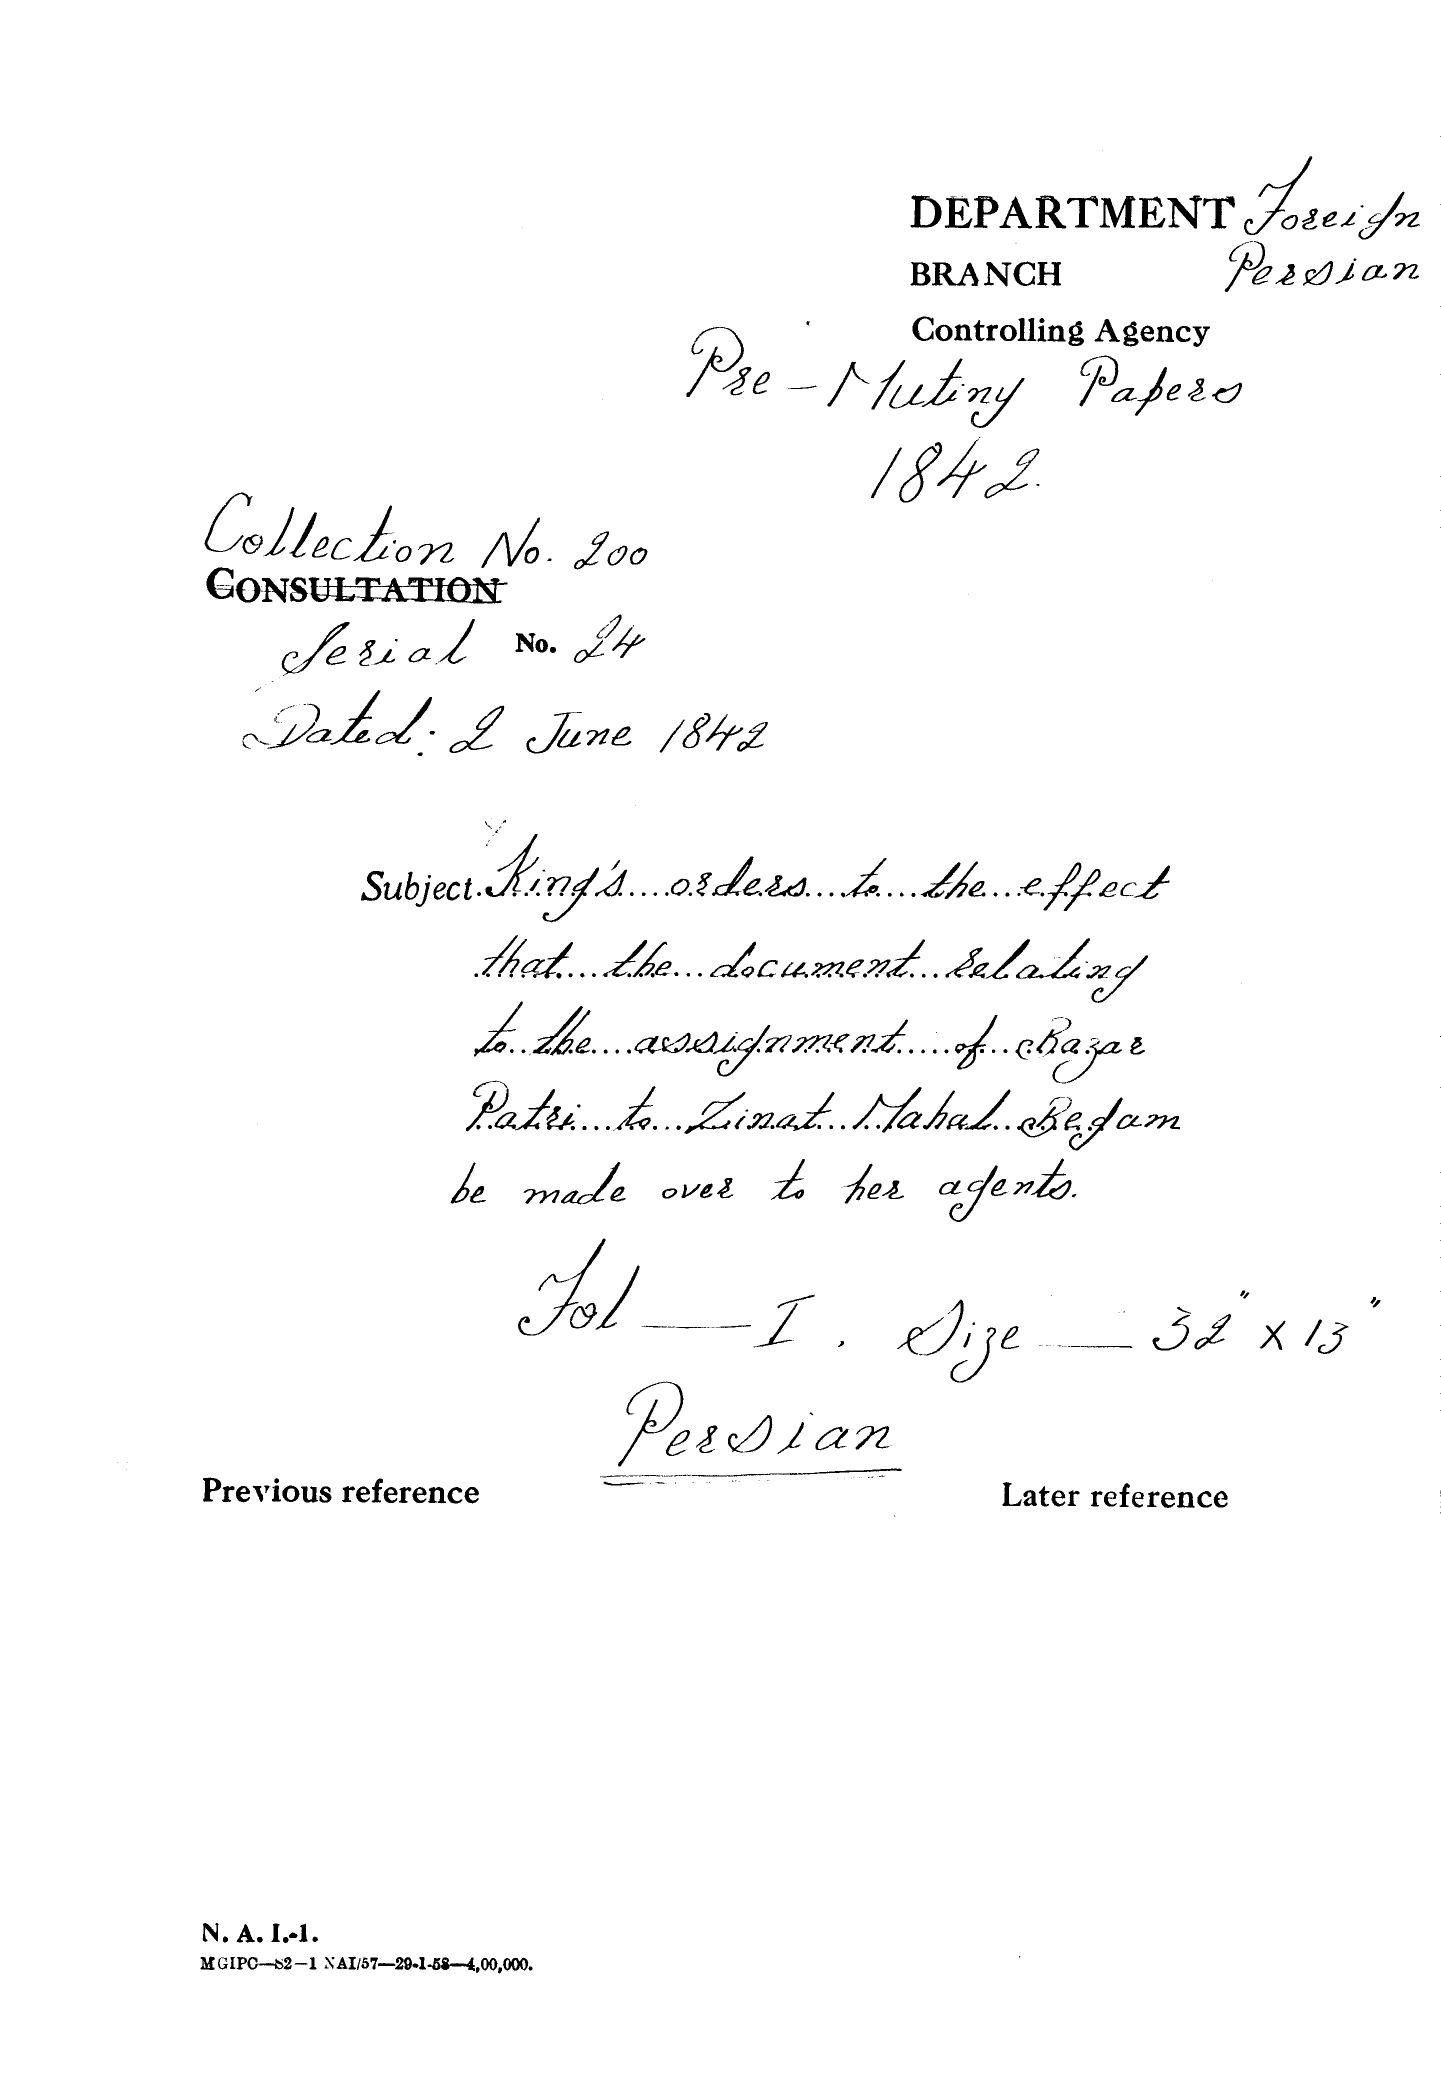 DEPARTMENT Foreign
BRANCH Persian
Controlling Agency
Pre - Mutiny Papers
1842.
Collection No. 200
CONSULTATION
Serial No. 24
Dated: 2 June 1842
Subject. King's orders to the effect
that the document relating
to the assignment of Bazar
Patri to Zinat Mahal Begam
be made over to her agents.
Fol — I. Size — 32" X 13"
Persian
Previous reference Later reference
N. A. I.-1.
MGIPC—S2—1 NAI/57—29-1-58—4,00,000.